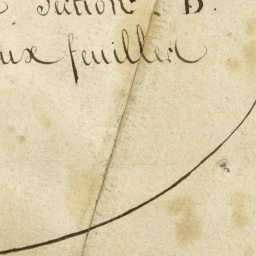 Section B.
ux feuilles